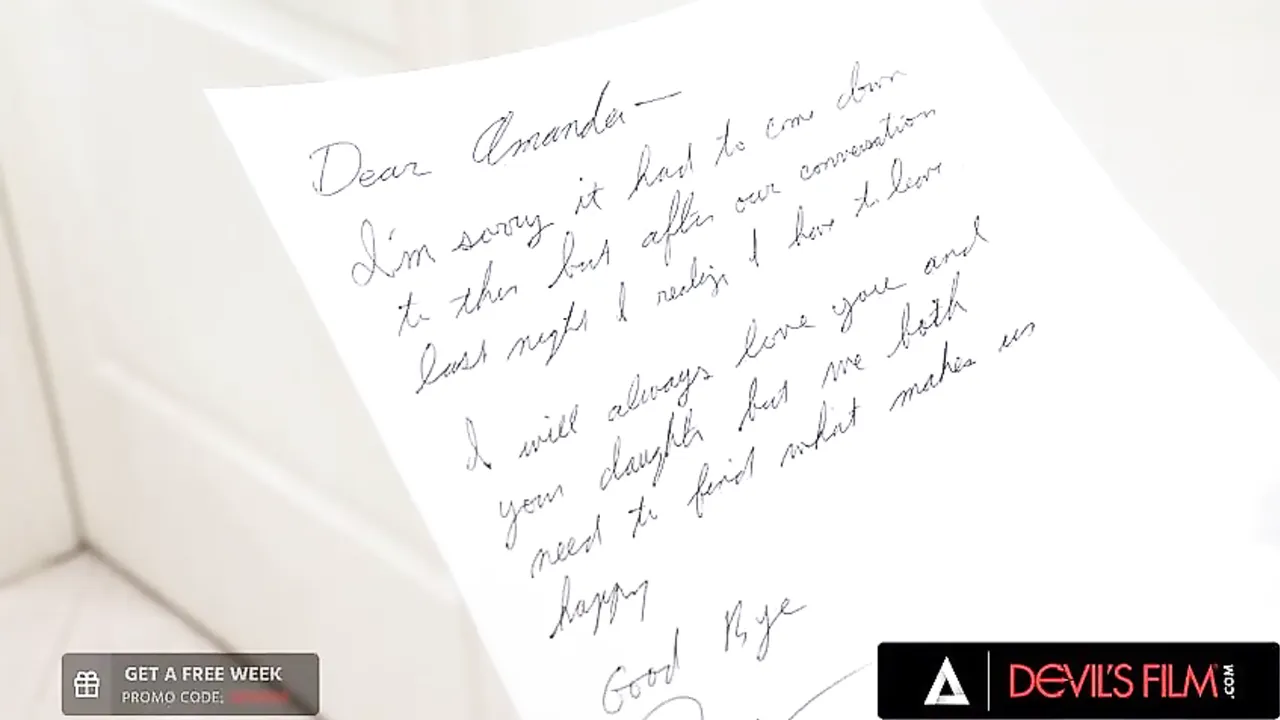 Dear Amanda —
I'm sorry it had to come down
to this but after our conversation
last night I realize I have to leave
I will always love you and
your daughter but we both
need to find what makes us
happy
Good Bye
GET A FREE WEEK
PROMO CODE:
DEVIL'S FILM .COM